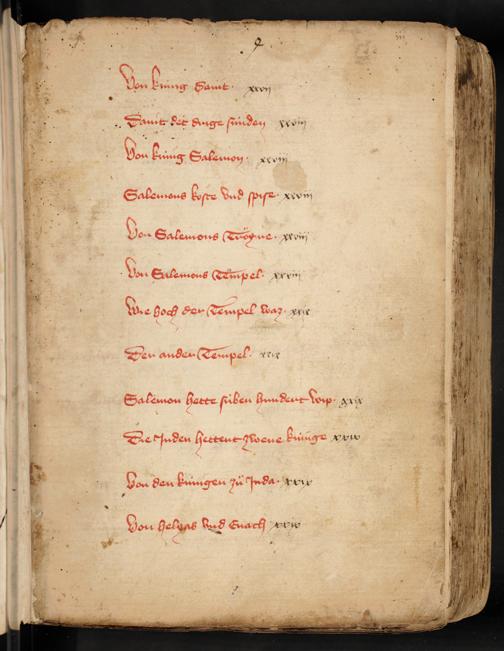 Von kúnig Dauit. xxvij
Dauit det druge súnden xxviij
Von kúnig Salemon. xxviij
Salemons koste vnd spise. xxviij
Von Salemons Trone. xxviij
Von Salemons Tempel. xxviij
Wie hoch der Tempel waz. xxix
Der ander Tempel. xxix
Salemon hette siben hundert wip. xxix
Die Juden hettent zwene kúnige xxix
Von den kúnigen zů Juda. xxix
Von helyas vnd Enoch xxix